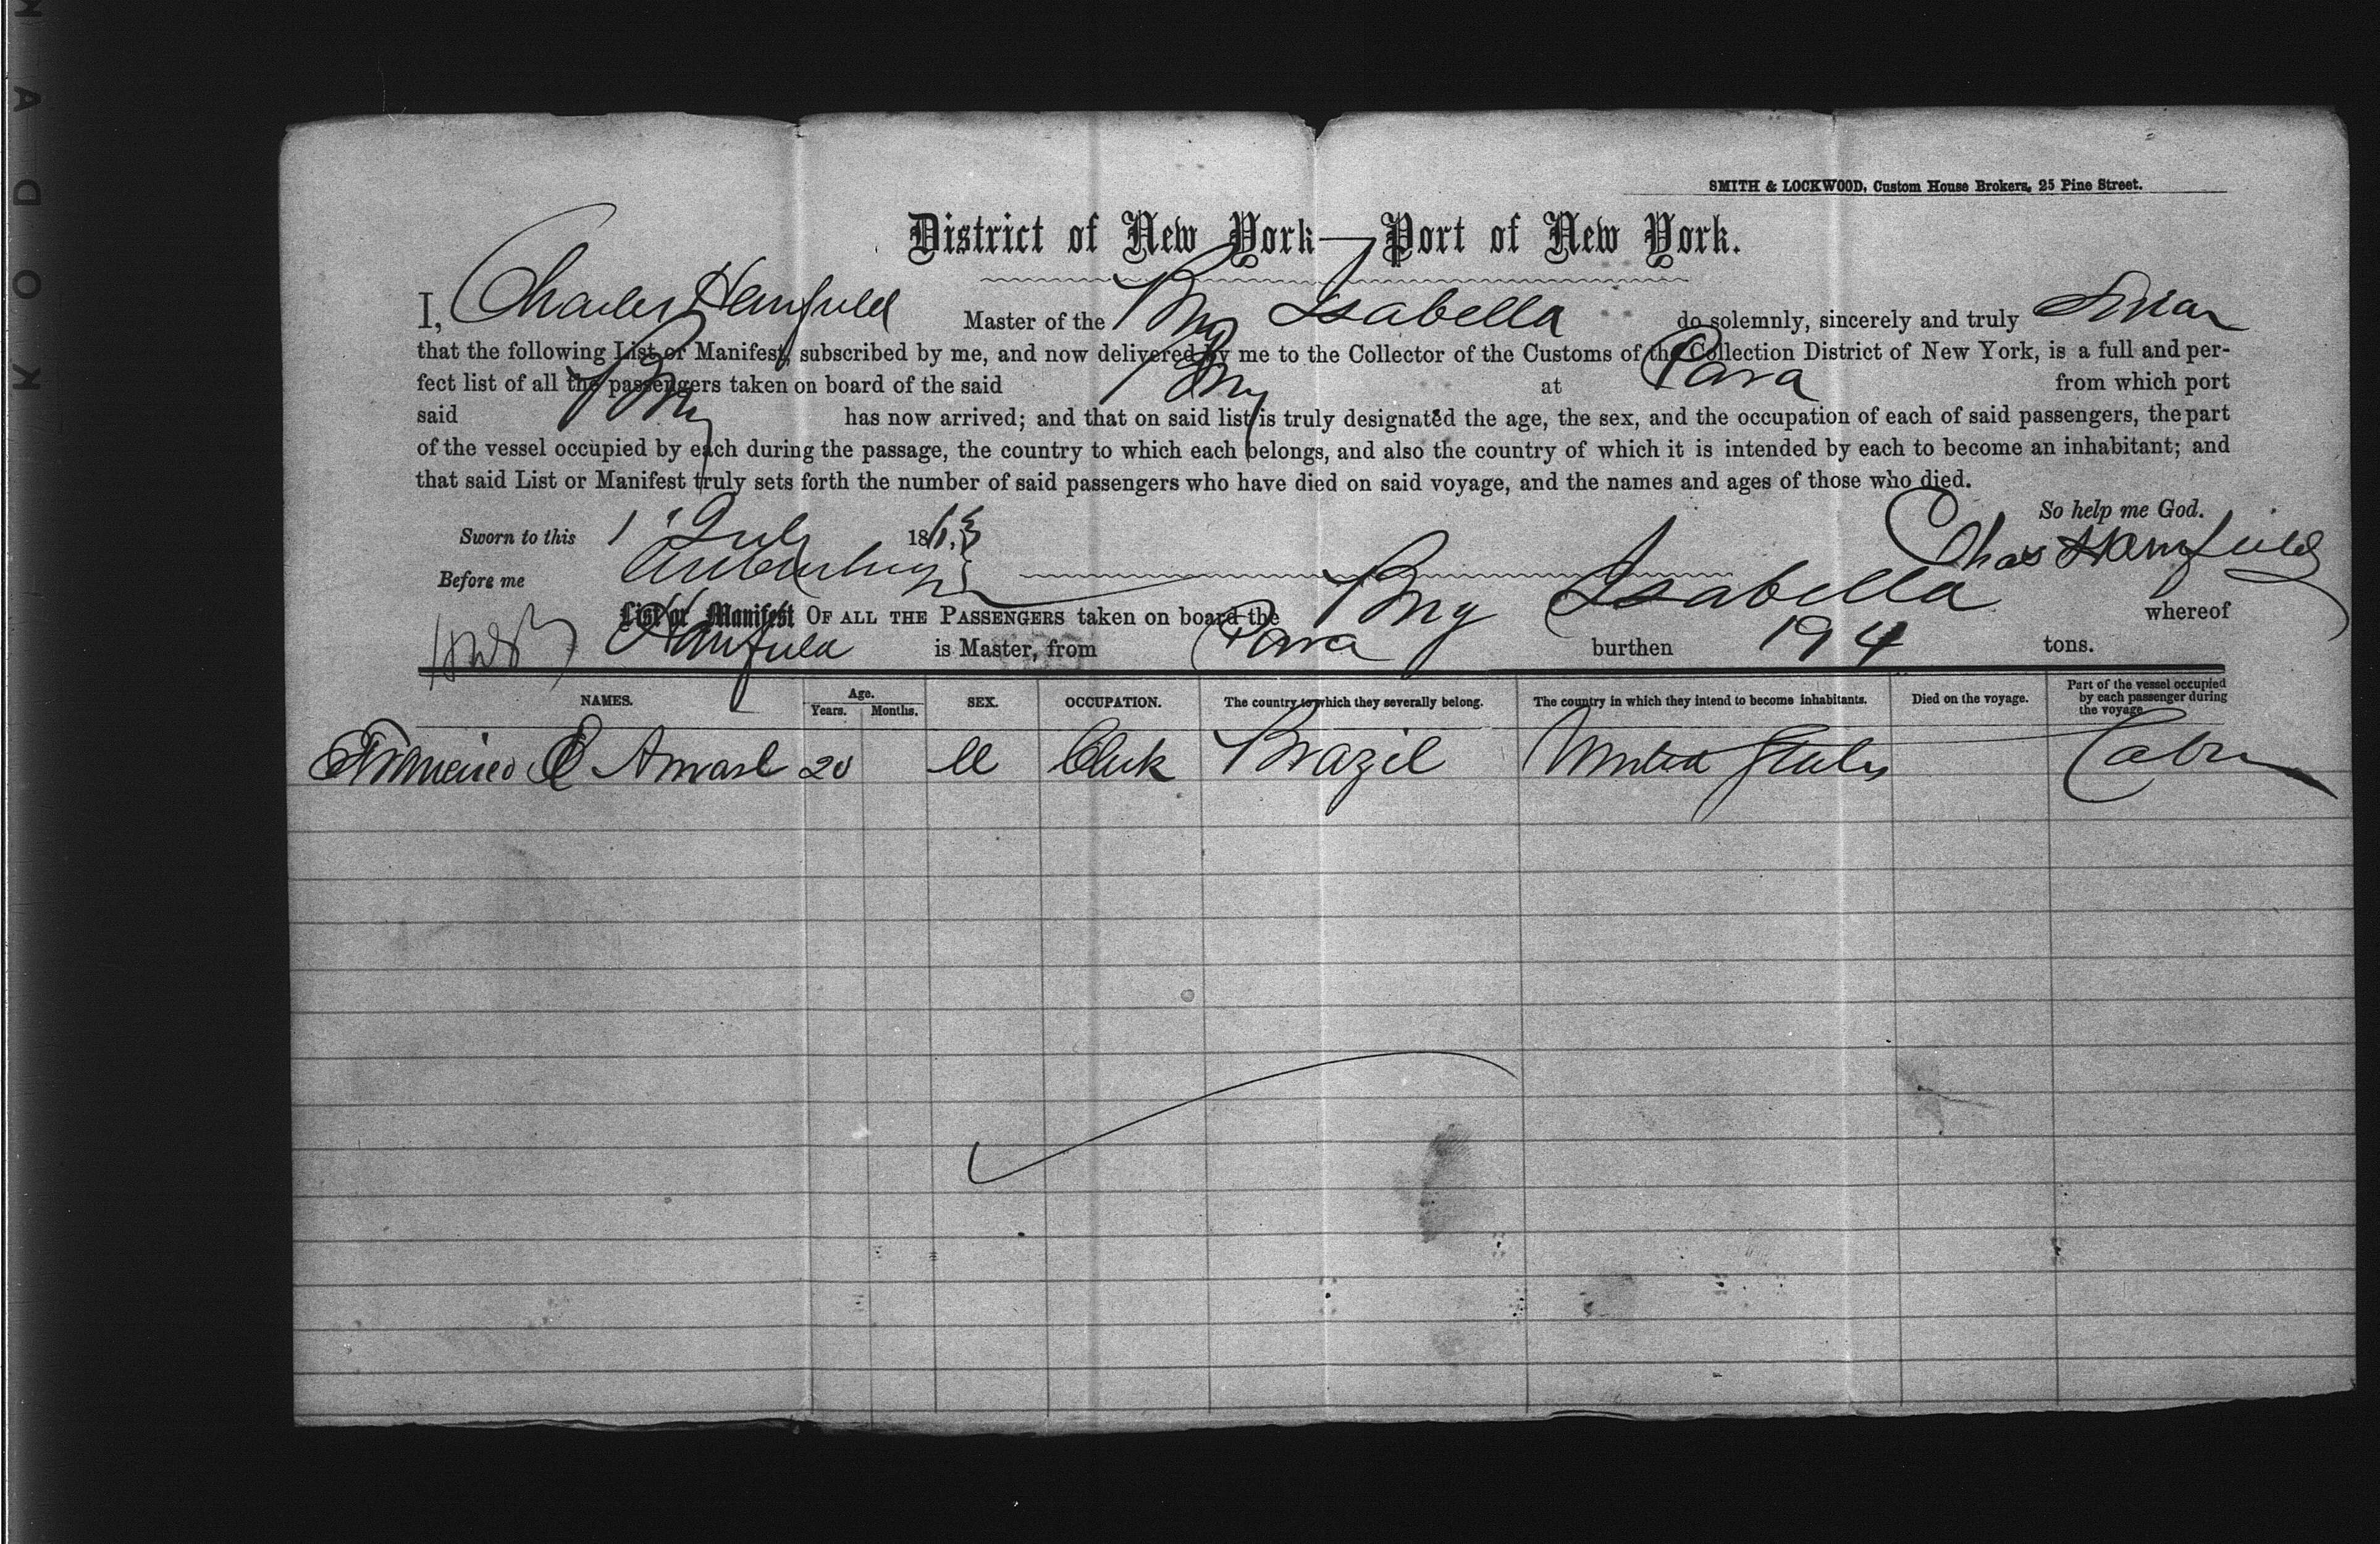 KODAK
SMITH & LOCKWOOD, Custom House Brokers, 25 Pine Street.
District of New York—Port of New York.
I, Charles Hanfield Master of the Brig Isabella do solemnly, sincerely and truly Swear
that the following List or Manifest, subscribed by me, and now delivered by me to the Collector of the Customs of the Collection District of New York, is a full and per-
fect list of all the passengers taken on board of the said Brig at Para from which port
said Brig has now arrived; and that on said list is truly designated the age, the sex, and the occupation of each of said passengers, the part
of the vessel occupied by each during the passage, the country to which each belongs, and also the country of which it is intended by each to become an inhabitant; and
that said List or Manifest truly sets forth the number of said passengers who have died on said voyage, and the names and ages of those who died.
So help me God.
Sworn to this 1" July 1863
Chas Hanfield
Before me
List or Manifest OF ALL THE PASSENGERS taken on board the Brig Isabella whereof
Hanfield is Master, from Para burthen 194 tons.
NAMES. Age. Years. Months. SEX. OCCUPATION. The country to which they severally belong. The country in which they intend to become inhabitants. Died on the voyage. Part of the vessel occupied by each passenger during the voyage.
Francisco Amaral 20 M Clerk Brazil United States Cabin